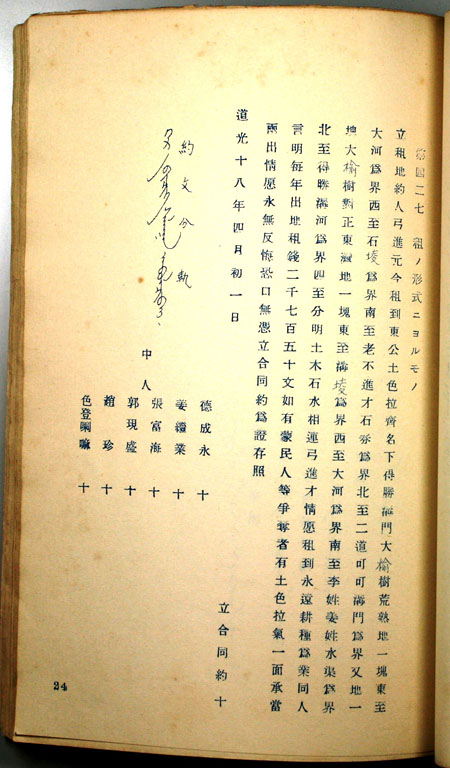 第四二七 租ノ形式ニヨルモノ
立租地約人弓進元今租到東公土色拉齊名下得勝溝門大榆樹荒熟地一塊東至
大河爲界西至石堎爲界南至老不進才石夯爲界北至二道叮叮溝門爲界又地一
塊大榆樹對正東溝地一塊東至溝堎爲界西至大河爲界南至李姓姜姓水渠爲界
北至得勝溝河爲界四至分明土木石水相連弓進才情愿租到永遠耕種爲業同人
言明每年出地租錢二千七百五十文如有蒙民人等爭奪者有土色拉氣一面承當
兩出情愿永無反悔恐口無憑立合同約爲證存照
立合同約十
道光十八年四月初一日
約文合執
中人
德成永 十
姜纘業 十
張富海 十
郭現盛 十
趙珍 十
色登唎嘛 十
24